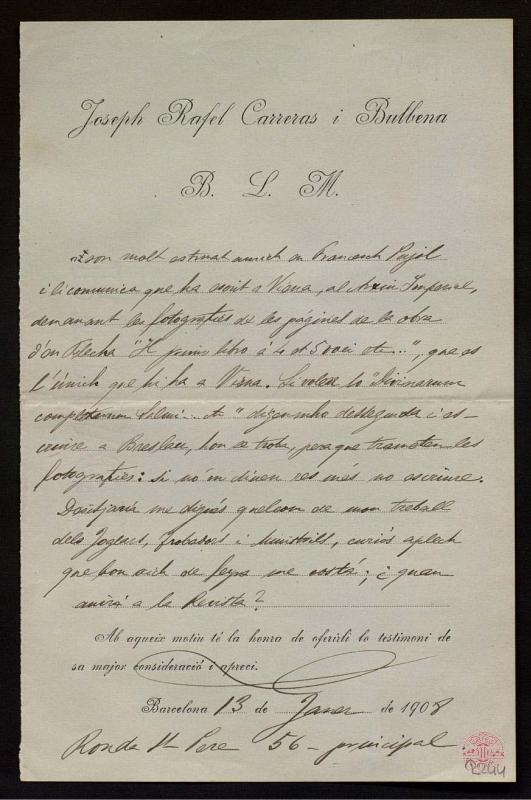 Joseph Rafel Carreras i Bulbena
B. L. M.
son molt estimat amich en Francesch Pujol
i li comunica que ha escrit a Viena, al Arxiu Imperial,
demanant les fotografies de les págines de la obra
d'en Flecha "Il primo libro á 4 et 5 voci etc..", que es
l'únich que hi ha a Viena. Si voleu lo "Divinarum
completarum psalmi... etc" digeumho desseguida i es-
criure a Breslau, hon es troba, pera que trameten les
fotografies: si no'm dihen res més no escriure.
Desitjaría me digués quelcom de mon treball
dels Joglars, Trobadors i Ministrils, curiós aplech
que bon xich de feyna me costá; ¿quan
anirá a la Revista?
Ab aqueix motiu té la honra de oferirli lo testimoni de
sa major consideració i apreci.
Barcelona 13 de Janer de 1908
Ronda St Pere 56 - principal
R244